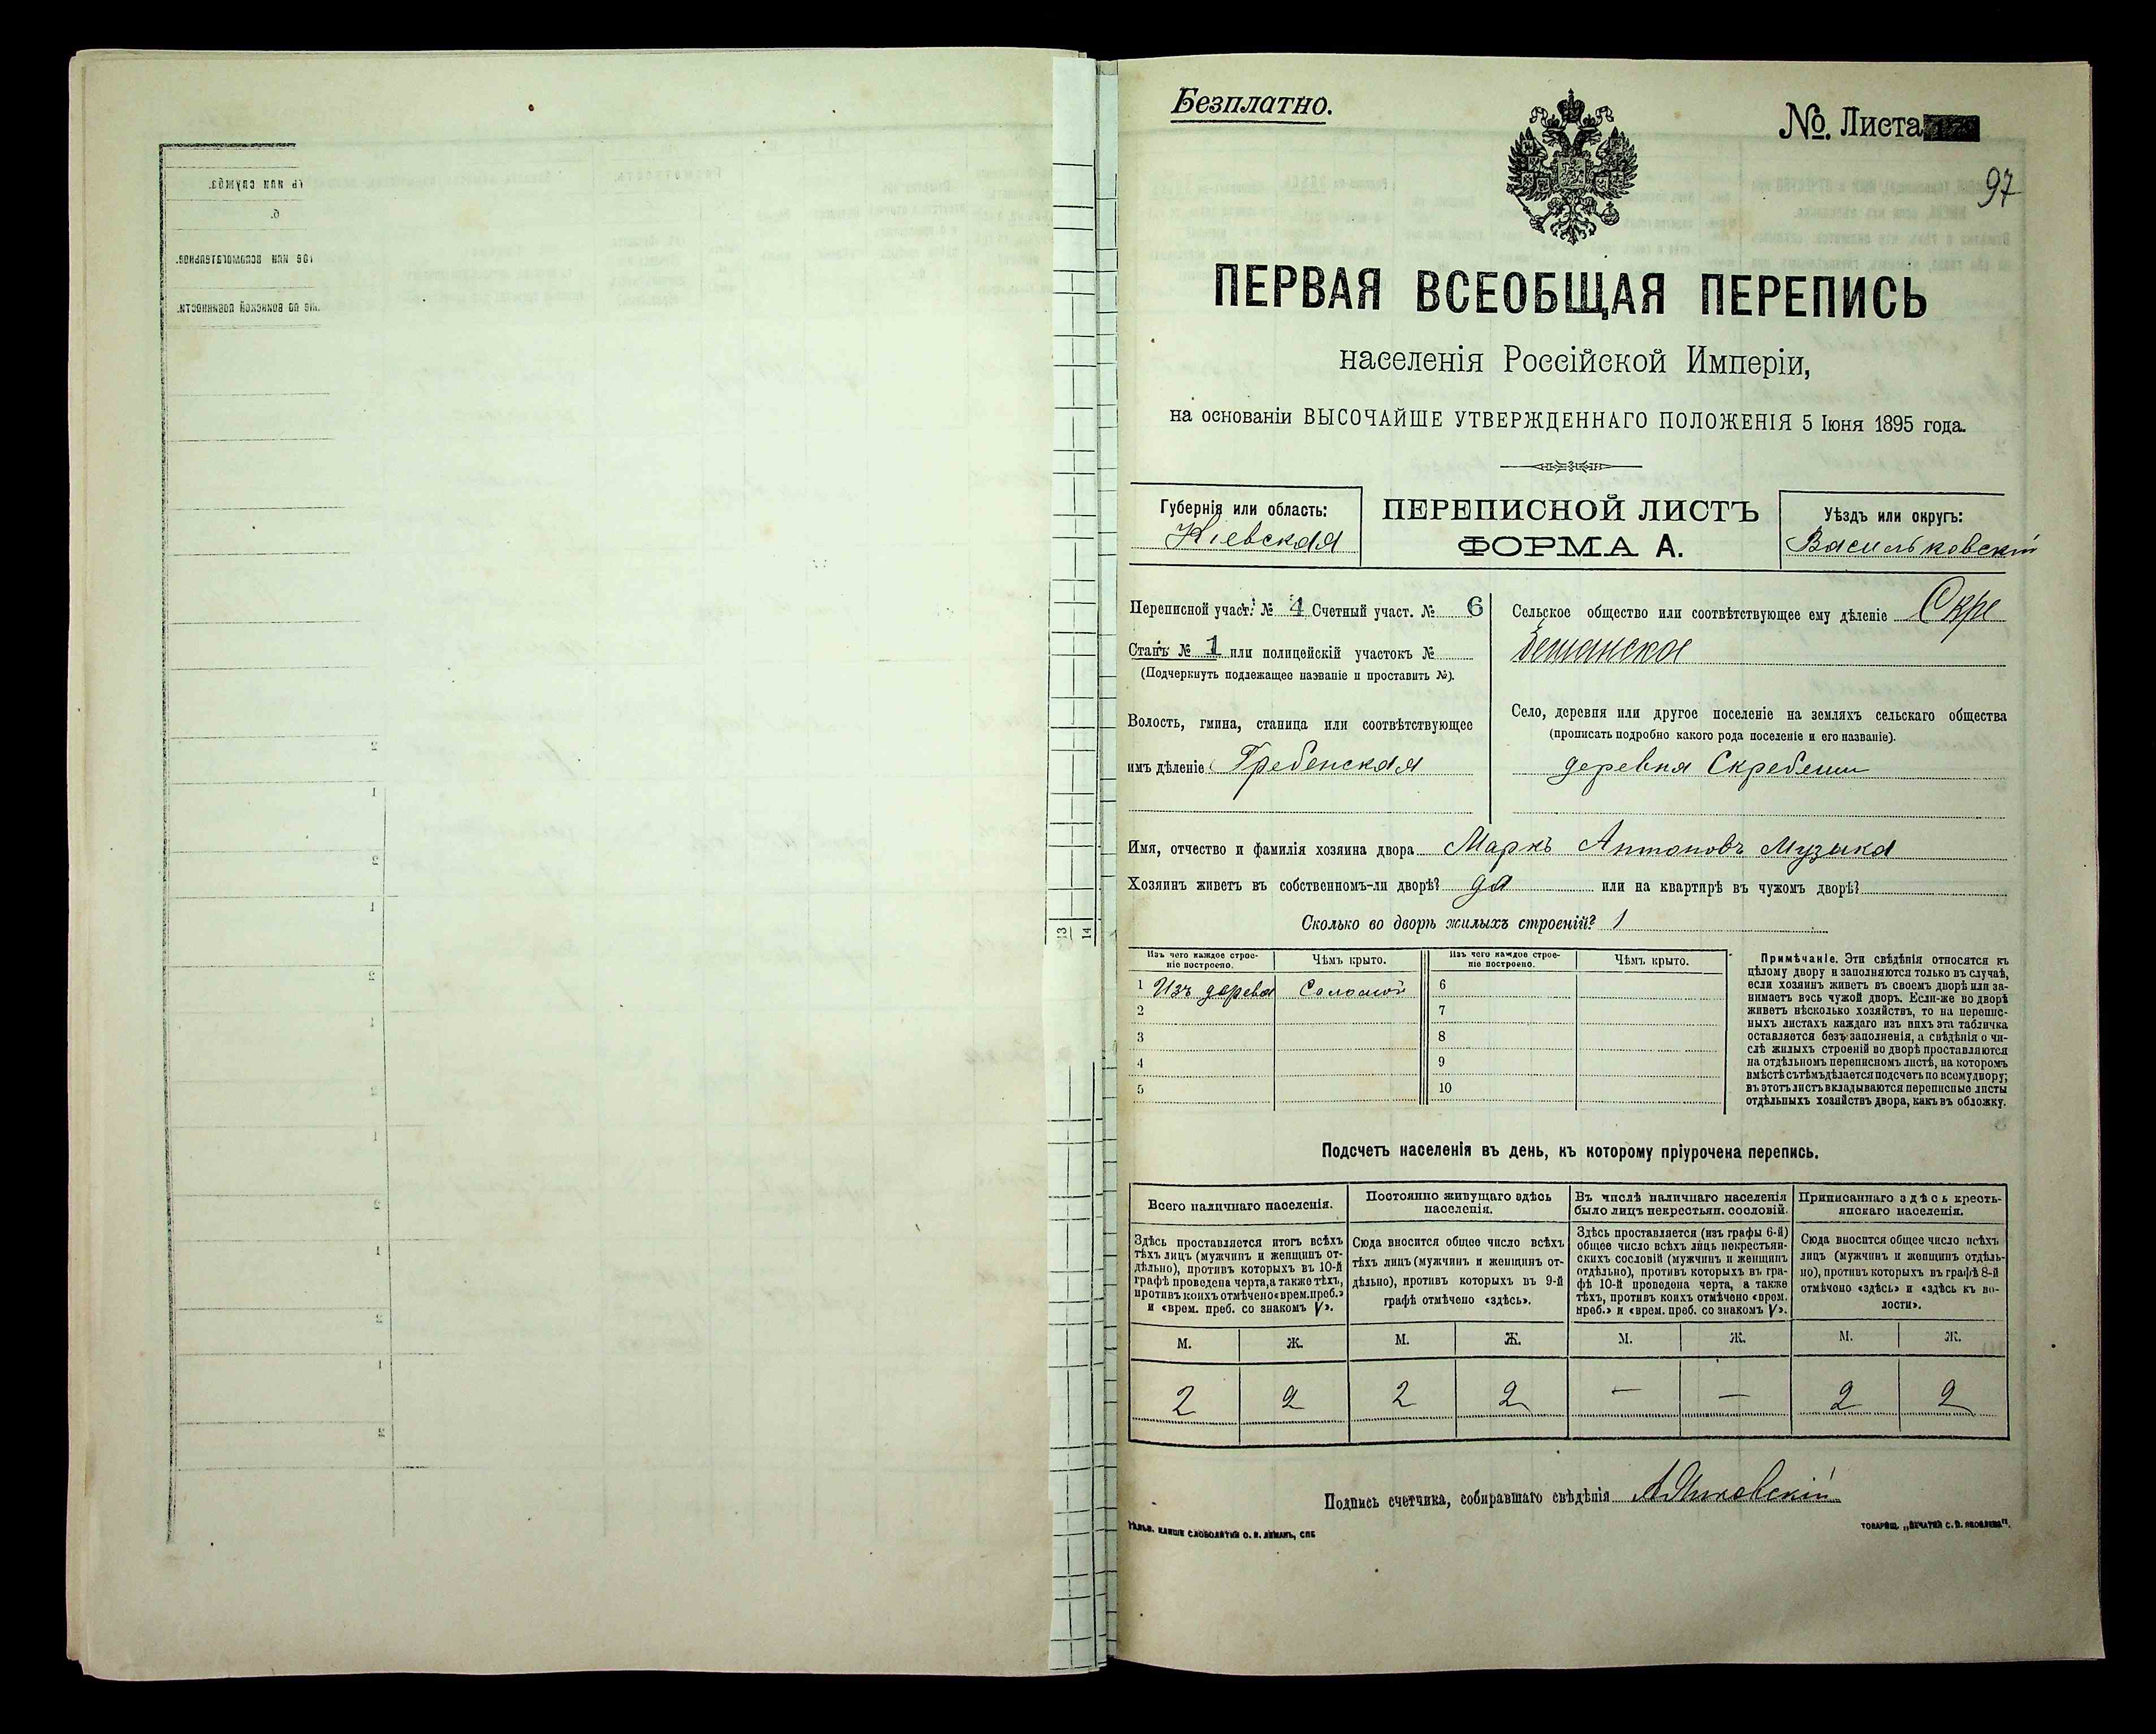 Безплатно.
№. Листа
97
ПЕРВАЯ ВСЕОБЩАЯ ПЕРЕПИСЬ
населенія Россійской Имперіи,
на основаніи ВЫСОЧАЙШЕ УТВЕРЖДЕННАГО ПОЛОЖЕНІЯ 5 Іюня 1895 года.
Губернія или область:
Кіевская
ПЕРЕПИСНОЙ ЛИСТЪ
ФОРМА А.
Уѣздъ или округъ:
Васильковскій
Переписной участ. № 4 Счетный участ. № 6
Станъ № 1 или полицейскій участокъ №
(Подчеркнуть подлежащее названіе и проставить №).
Волость, гмина, станица или соотвѣтствующее
имъ дѣленіе Гребенская
Сельское общество или соотвѣтствующее ему дѣленіе Скре
бешанское
Село, деревня или другое поселеніе на земляхъ сельскаго общества
(прописать подробно какого рода поселеніе и его названіе).
деревня Скребеши
Имя, отчество и фамилія хозяина двора Маркъ Антоновъ Музыка
Хозяинъ живетъ въ собственномъ-ли дворѣ? да или на квартирѣ въ чужомъ дворѣ?
Сколько во дворѣ жилыхъ строеній? 1
Изъ чего каждое строе-
ніе построено.
Чѣмъ крыто.
Изъ чего каждое строе-
ніе построено.
Чѣмъ крыто.
1 Изъ дерева Соломой 6
2 7
3 8
4 9
5 10
Примѣчаніе. Эти свѣдѣнія относятся къ
цѣлому двору и заполняются только въ случаѣ,
если хозяинъ живетъ въ своемъ дворѣ или за-
нимаетъ весь чужой дворъ. Если-же во дворѣ
живетъ нѣсколько хозяйствъ, то на перепис-
ныхъ листахъ каждаго изъ нихъ эта табличка
оставляется безъ заполненія, а свѣдѣнія о чи-
слѣ жилыхъ строеній во дворѣ проставляются
на отдѣльномъ переписномъ листѣ, на которомъ
вмѣстѣ съ тѣмъ дѣлается подсчетъ по всему двору;
въ этотъ листъ вкладываются переписные листы
отдѣльныхъ хозяйствъ двора, какъ въ обложку.
Подсчетъ населенія въ день, къ которому пріурочена перепись.
Всего наличнаго населенія.
Здѣсь проставляется итогъ всѣхъ
тѣхъ лицъ (мужчинъ и женщинъ от-
дѣльно), противъ которыхъ въ 10-й
графѣ проведена черта, а также тѣхъ,
противъ коихъ отмѣчено «врем. преб.»
и «врем. преб. со знакомъ V».
Постоянно живущаго здѣсь
населенія.
Сюда вносится общее число всѣхъ
тѣхъ лицъ (мужчинъ и женщинъ от-
дѣльно), противъ которыхъ въ 9-й
графѣ отмѣчено «здѣсь».
Въ числѣ наличнаго населенія
было лицъ некрестьян. сословій.
Здѣсь проставляется (изъ графы 6-й)
общее число всѣхъ лицъ некрестьян-
скихъ сословій (мужчинъ и женщинъ
отдѣльно), противъ которыхъ въ гра-
фѣ 10-й проведена черта, а также
тѣхъ, противъ коихъ отмѣчено «врем.
преб.» и «врем. преб. со знакомъ V».
Приписаннаго здѣсь кресть-
янскаго населенія.
Сюда вносится общее число всѣхъ
лицъ (мужчинъ и женщинъ отдѣль-
но), противъ которыхъ въ графѣ 8-й
отмѣчено «здѣсь» и «здѣсь къ во-
лости».
М. Ж. М. Ж. М. Ж. М. Ж.
2 2 2 2 — — 2 2
Подпись счетчика, собиравшаго свѣдѣнія
ТОВАРИЩ. „ПЕЧАТНЯ С. П. ЯКОВЛЕВА".
13
14